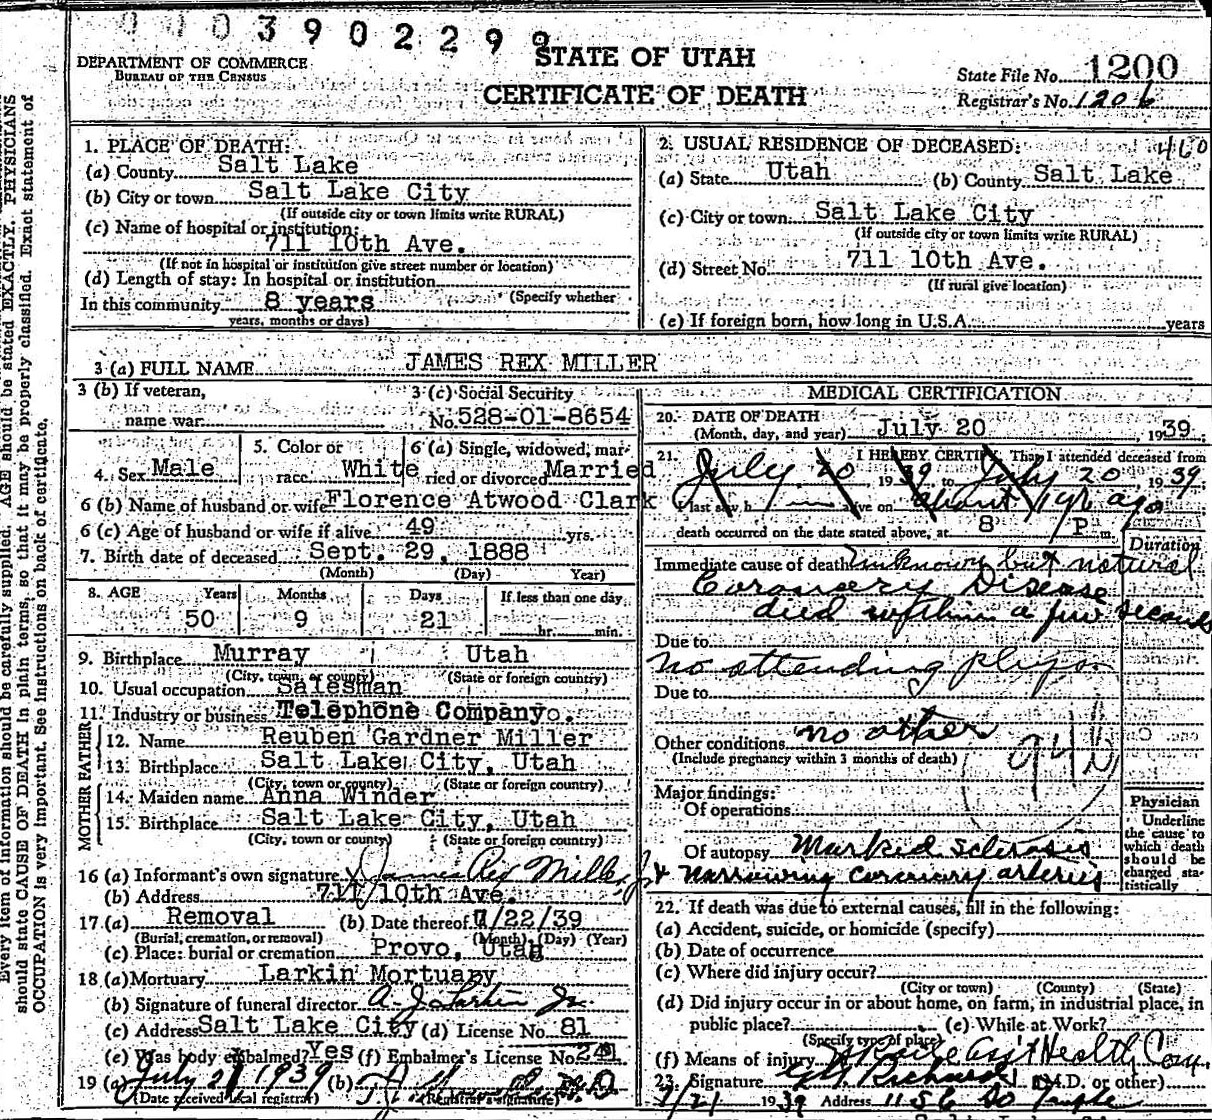 0003902299
STATE OF UTAH
CERTIFICATE OF DEATH
DEPARTMENT OF COMMERCE
BUREAU OF THE CENSUS
State File No. 1200
Registrar's No. 1206
1. PLACE OF DEATH:
(a) County Salt Lake
(b) City or town Salt Lake City
(If outside city or town limits write RURAL)
(c) Name of hospital or institution:
711 10th Ave.
(If not in hospital or institution give street number or location)
(d) Length of stay: In hospital or institution
(Specify whether
In this community 8 years
years, months or days)
2. USUAL RESIDENCE OF DECEASED: 460
(a) State Utah (b) County Salt Lake
(c) City or town Salt Lake City
(If outside city or town limits write RURAL)
(d) Street No. 711 10th Ave.
(If rural give location)
(e) If foreign born, how long in U.S.A. years
3 (a) FULL NAME JAMES REX MILLER
3 (b) If veteran, name war
3 (c) Social Security No. 528-01-8654
4. Sex Male
5. Color or race White
6 (a) Single, widowed, married or divorced Married
6 (b) Name of husband or wife Florence Atwood Clark
6 (c) Age of husband or wife if alive 49 yrs.
7. Birth date of deceased Sept. 29, 1888
(Month) (Day) Year)
8. AGE Years Months Days If less than one day
50 9 21 hr. min.
9. Birthplace Murray Utah
(City, town, or county) (State or foreign country)
10. Usual occupation Salesman
11. Industry or business Telephone Companyo.
FATHER
12. Name Reuben Gardner Miller
13. Birthplace Salt Lake City, Utah
(City, town or county) (State or foreign country)
MOTHER
14. Maiden name Anna Winder
15. Birthplace Salt Lake City, Utah
(City, town or county) (State or foreign country)
16 (a) Informant's own signature James Rex Miller Jr
(b) Address 711 10th Ave.
17 (a) Removal (b) Date thereof 7/22/39
(Burial, cremation, or removal) (Month) (Day) (Year)
(c) Place: burial or cremation Provo, Utah
18 (a) Mortuary Larkin Mortuary
(b) Signature of funeral director A. J. Larkin Jr.
(c) Address Salt Lake City (d) License No. 81
(e) Was body embalmed? Yes (f) Embalmer's License No. 241
19 (a) July 21 1939 (b)
(Date received local registrar) (Registrar's signature)
MEDICAL CERTIFICATION
20. DATE OF DEATH
(Month, day, and year) July 20, 1939.
21. I HEREBY CERTIFY, That I attended deceased from
July 20 1939 to July 20 1939.
I last saw h alive on about 1 yr ago
death occurred on the date stated above, at 8 P m.
Duration
Immediate cause of death Unknown but natural
Coronary Disease
died within a few seconds
Due to
no attending phys
Due to
Other conditions no other
(Include pregnancy within 3 months of death)
94b
Major findings:
Of operations
Of autopsy Marked sclerosis
+ narrowing coronary arteries
Physician
Underline
the cause to
which death
should be
charged sta-
tistically
22. If death was due to external causes, fill in the following:
(a) Accident, suicide, or homicide (specify)
(b) Date of occurrence
(c) Where did injury occur?
(City or town) (County) (State)
(d) Did injury occur in or about home, on farm, in industrial place, in
public place? (e) While at Work?
(Specify type of place)
(f) Means of injury Ass't Health Com.
23. Signature Richards (M.D. or other)
7/21 1939 Address 1156 So Temple
Every item of information should be carefully supplied. AGE should be stated EXACTLY. PHYSICIANS
should state CAUSE OF DEATH in plain terms, so that it may be properly classified. Exact statement of
OCCUPATION is very important. See instructions on back of certificate.